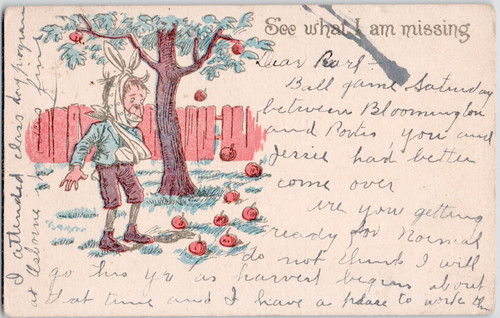 See what I am missing
Dear Pearl -
Ball game Saturday
between Bloomington
and Portis, you and
Jessie had better
come over
Are you getting
ready for Normal
do not think I will
go this yr as harvest begins about
that time and I have a place to work th
I attended class day program
at Osborne fine